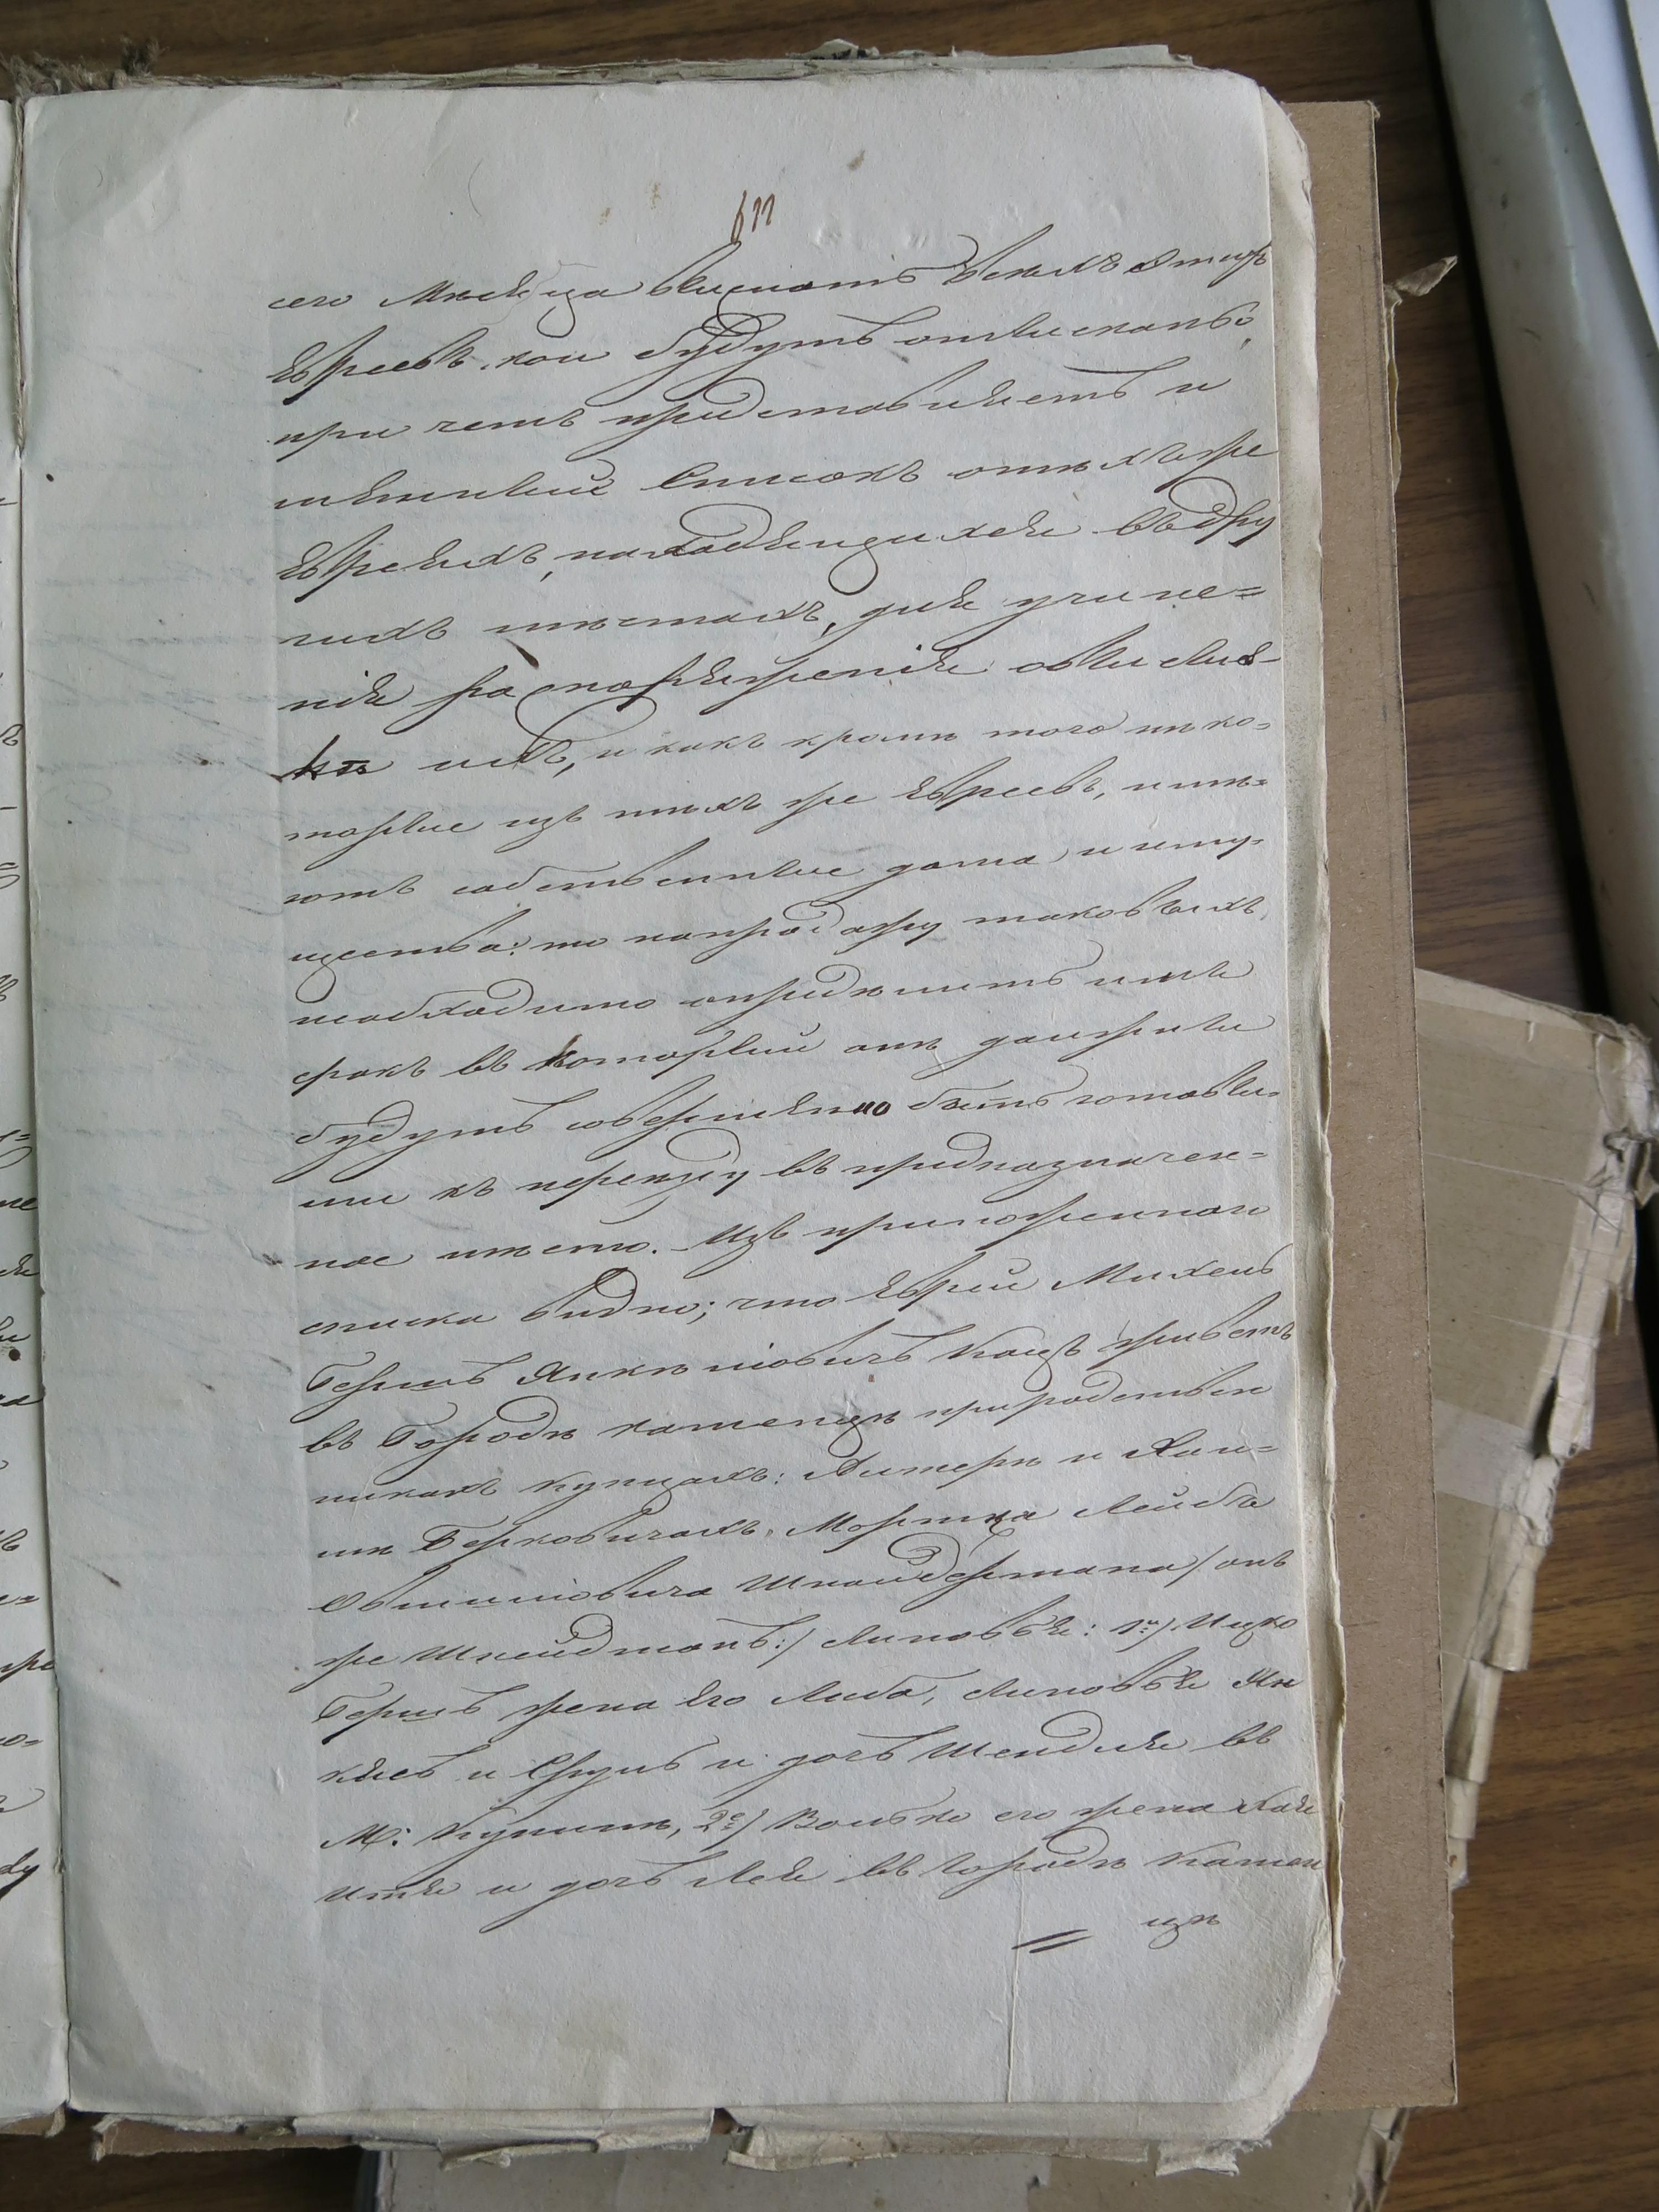 611
сего Мѣсяца выслать всехъ
Евреевъ кои будутъ отысканы,
при чемъ представляетъ и
именный Списокъ о тѣхъ же
Евреяхъ, находящихся въ дру
гихъ местахъ, для учине=
нія распоряженія о высыл-
кѣ ихъ, и какъ кроме того нѣко=
торые изъ тѣхъ же Евреевъ, имѣ=
ютъ собственные дома и иму=
щества: то на продажу таковыхъ,
необходимо определить имъ
срокъ въ который они должны
будутъ совершенно быть готовы=
ми къ переезду въ предназначен=
ное место. Изъ приложеннаго
списка видно; что Еврей Михель
Гершъ Янкелiовичъ Кацъ живетъ
въ Городѣ Каменцѣ при родствен
никахъ купцахъ: и Хаи=
мѣ Берковичахъ. Мортка Лейба
Шнайдермана / онъ
же Шнейдманъ:/ Сыновья: 1й/ Ицко
Гершъ жена его Либа, Сыновья Ян
кель и Сруль и дочь Шендля въ
М: Купинѣ, 2й/ Волько его жена Хая
Итя и дочь Лея въ городѣ Камен
цѣ